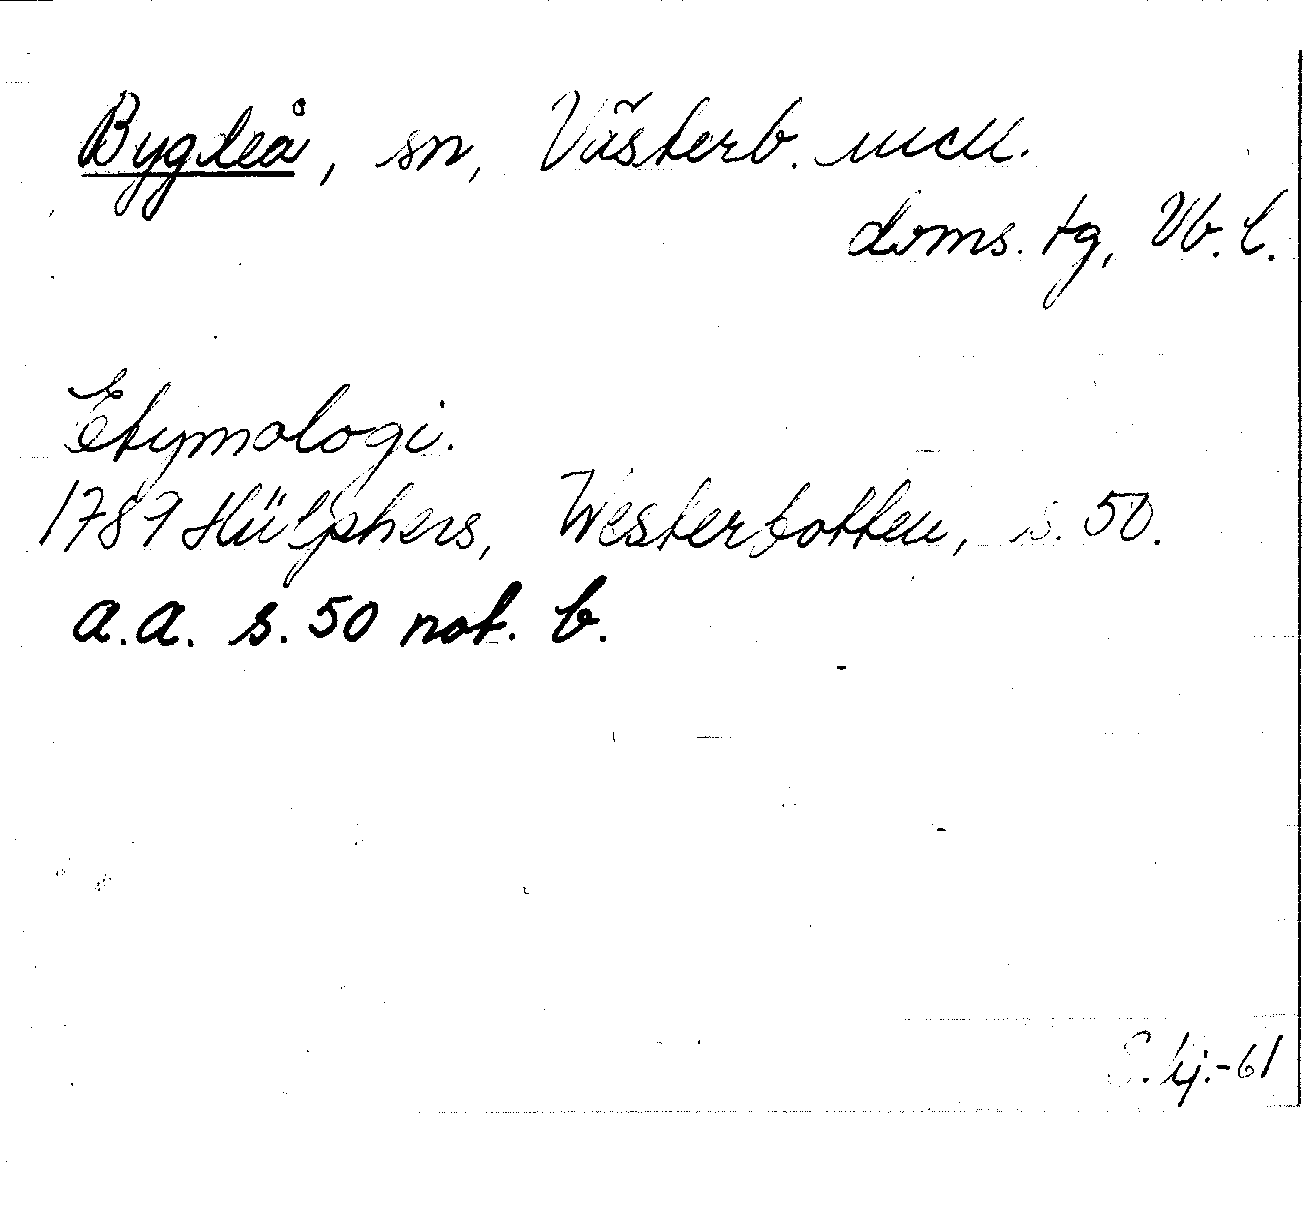 Bygdeå, sn, Västerb. mell.
doms. tg, Vb. l.
Etymologi.
1789 Hülphers, Westerbotten, s. 50.
a.a. s. 50 not. b.
S. Lj. -61